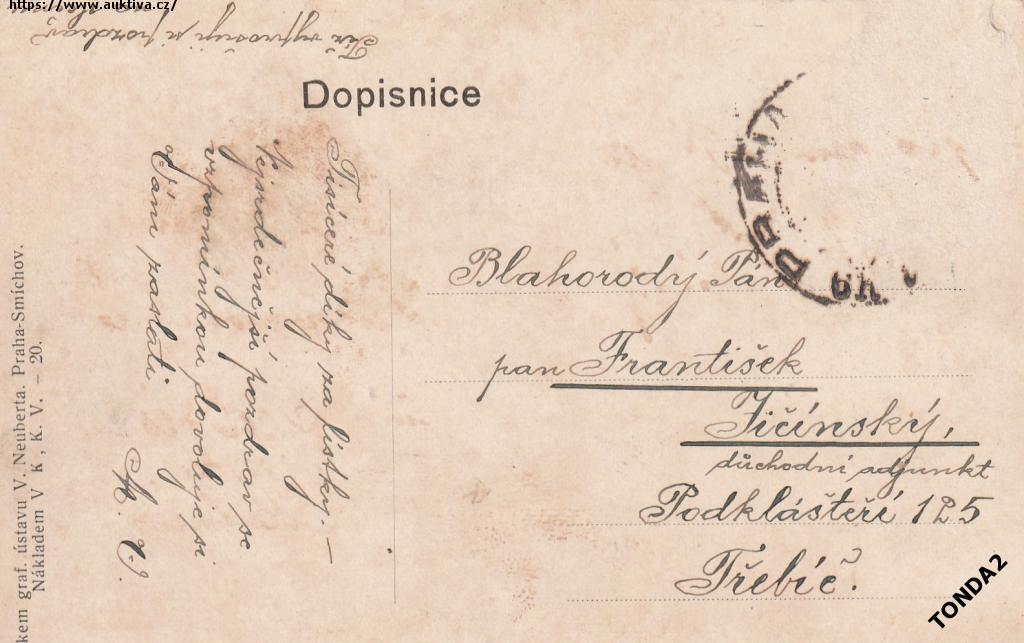 https://www.auktiva.cz/
Též vyprošuji si pozdrav
Dopisnice
Tisíceré díky za lístky. —
Nejsrdečnější pozdrav se
vzpomínkou dovoluje si
Vám zaslati
M. V.
PRAHA
Blahorodý Pán
pan František
Jičínský,
důchodní adjunkt
Podklášteří 125
Třebíč.
kem graf. ústavu V. Neuberta. Praha-Smíchov.
Nákladem V K, K. V. – 20.
TONDA2